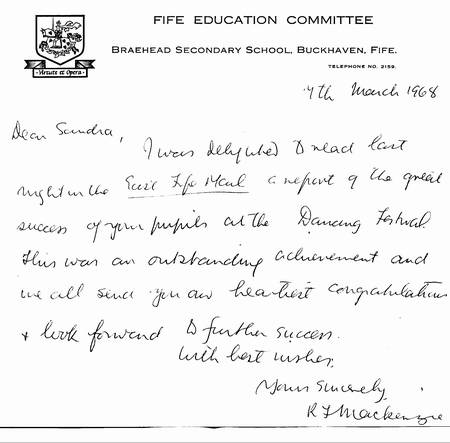 FIFE EDUCATION COMMITTEE
BRAEHEAD SECONDARY SCHOOL, BUCKHAVEN, FIFE.
TELEPHONE NO. 2159.
Virtute et Opera
7th March 1968
Dear Sandra,
I was delighted to read last
night in the East Fife Mail a report of the great
success of your pupils at the Dancing Festival.
This was an outstanding achievement and
we all send you our heartiest congratulations
& look forward to further success.
With best wishes,
Yours Sincerely,
R F Mackenzie